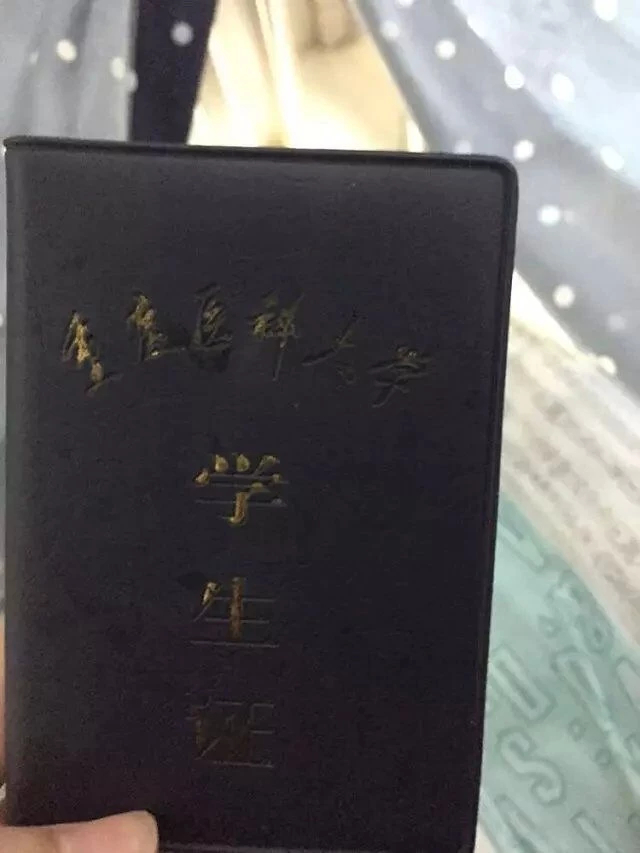 重庆医科大学
学
生
证